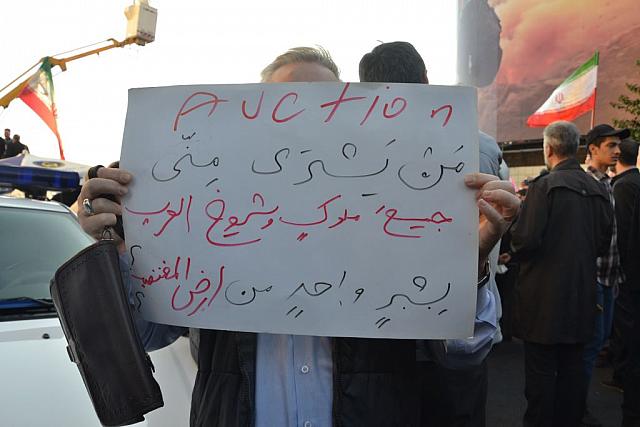 AUCTIOn
مَنْ يَشْتَرى مِنّى
جميعَ ملوكٍ و شيوخ العرب
بشبرٍ واحدٍ من ارض المغتصبه ؟؟